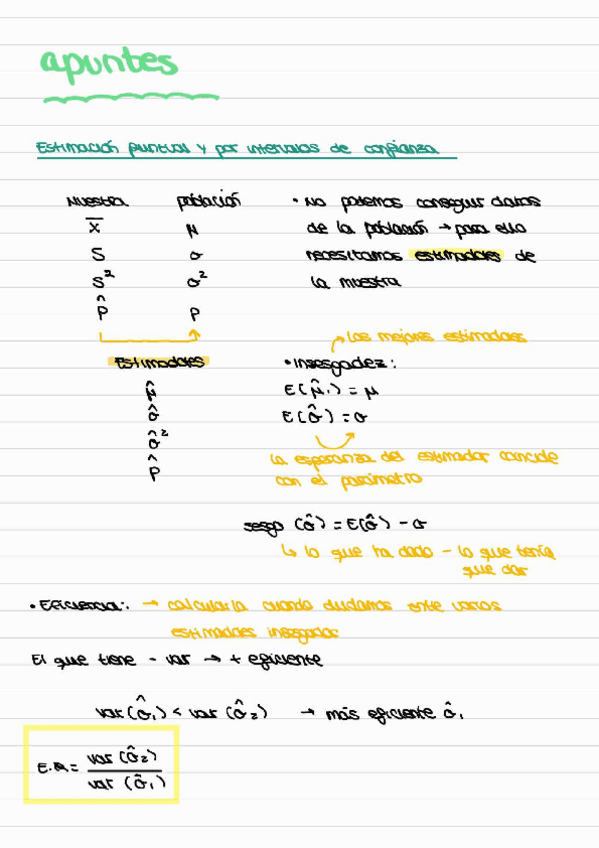 apuntes
Estimación puntual y por intervalos de confianza
Muestra población
x̄ μ
S σ
S² σ²
p̂ p
• No podemos conseguir datos
de la población → para ello
necesitamos estimadores de
la muestra
Estimadores
μ̂
σ̂
σ̂²
p̂
→ los mejores estimadores
• Insesgadez:
E(μ̂.) = μ
E(σ̂) = σ
la esperanza del estimador coincide
con el parámetro
sesgo (σ̂) = E(σ̂) - σ
↳ lo que ha dado - lo que tenía
que dar
• Eficiencia: → calcularla cuando dudamos entre varios
estimadores insesgados
El que tiene - var → + eficiente
var(σ̂₁) < var(σ̂₂) → más eficiente σ̂₁
E.R = var(σ̂₂)
var(σ̂₁)